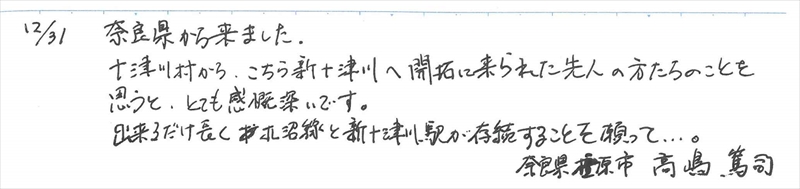 12/31 奈良県から来ました.
十津川村から、こちら新十津川へ開拓に来られた先人の方たちのことを
思うと、とても感慨深いです。
出来るだけ長く札沼線と新十津川駅が存続することを願って…。
奈良県橿原市 高嶋篤司